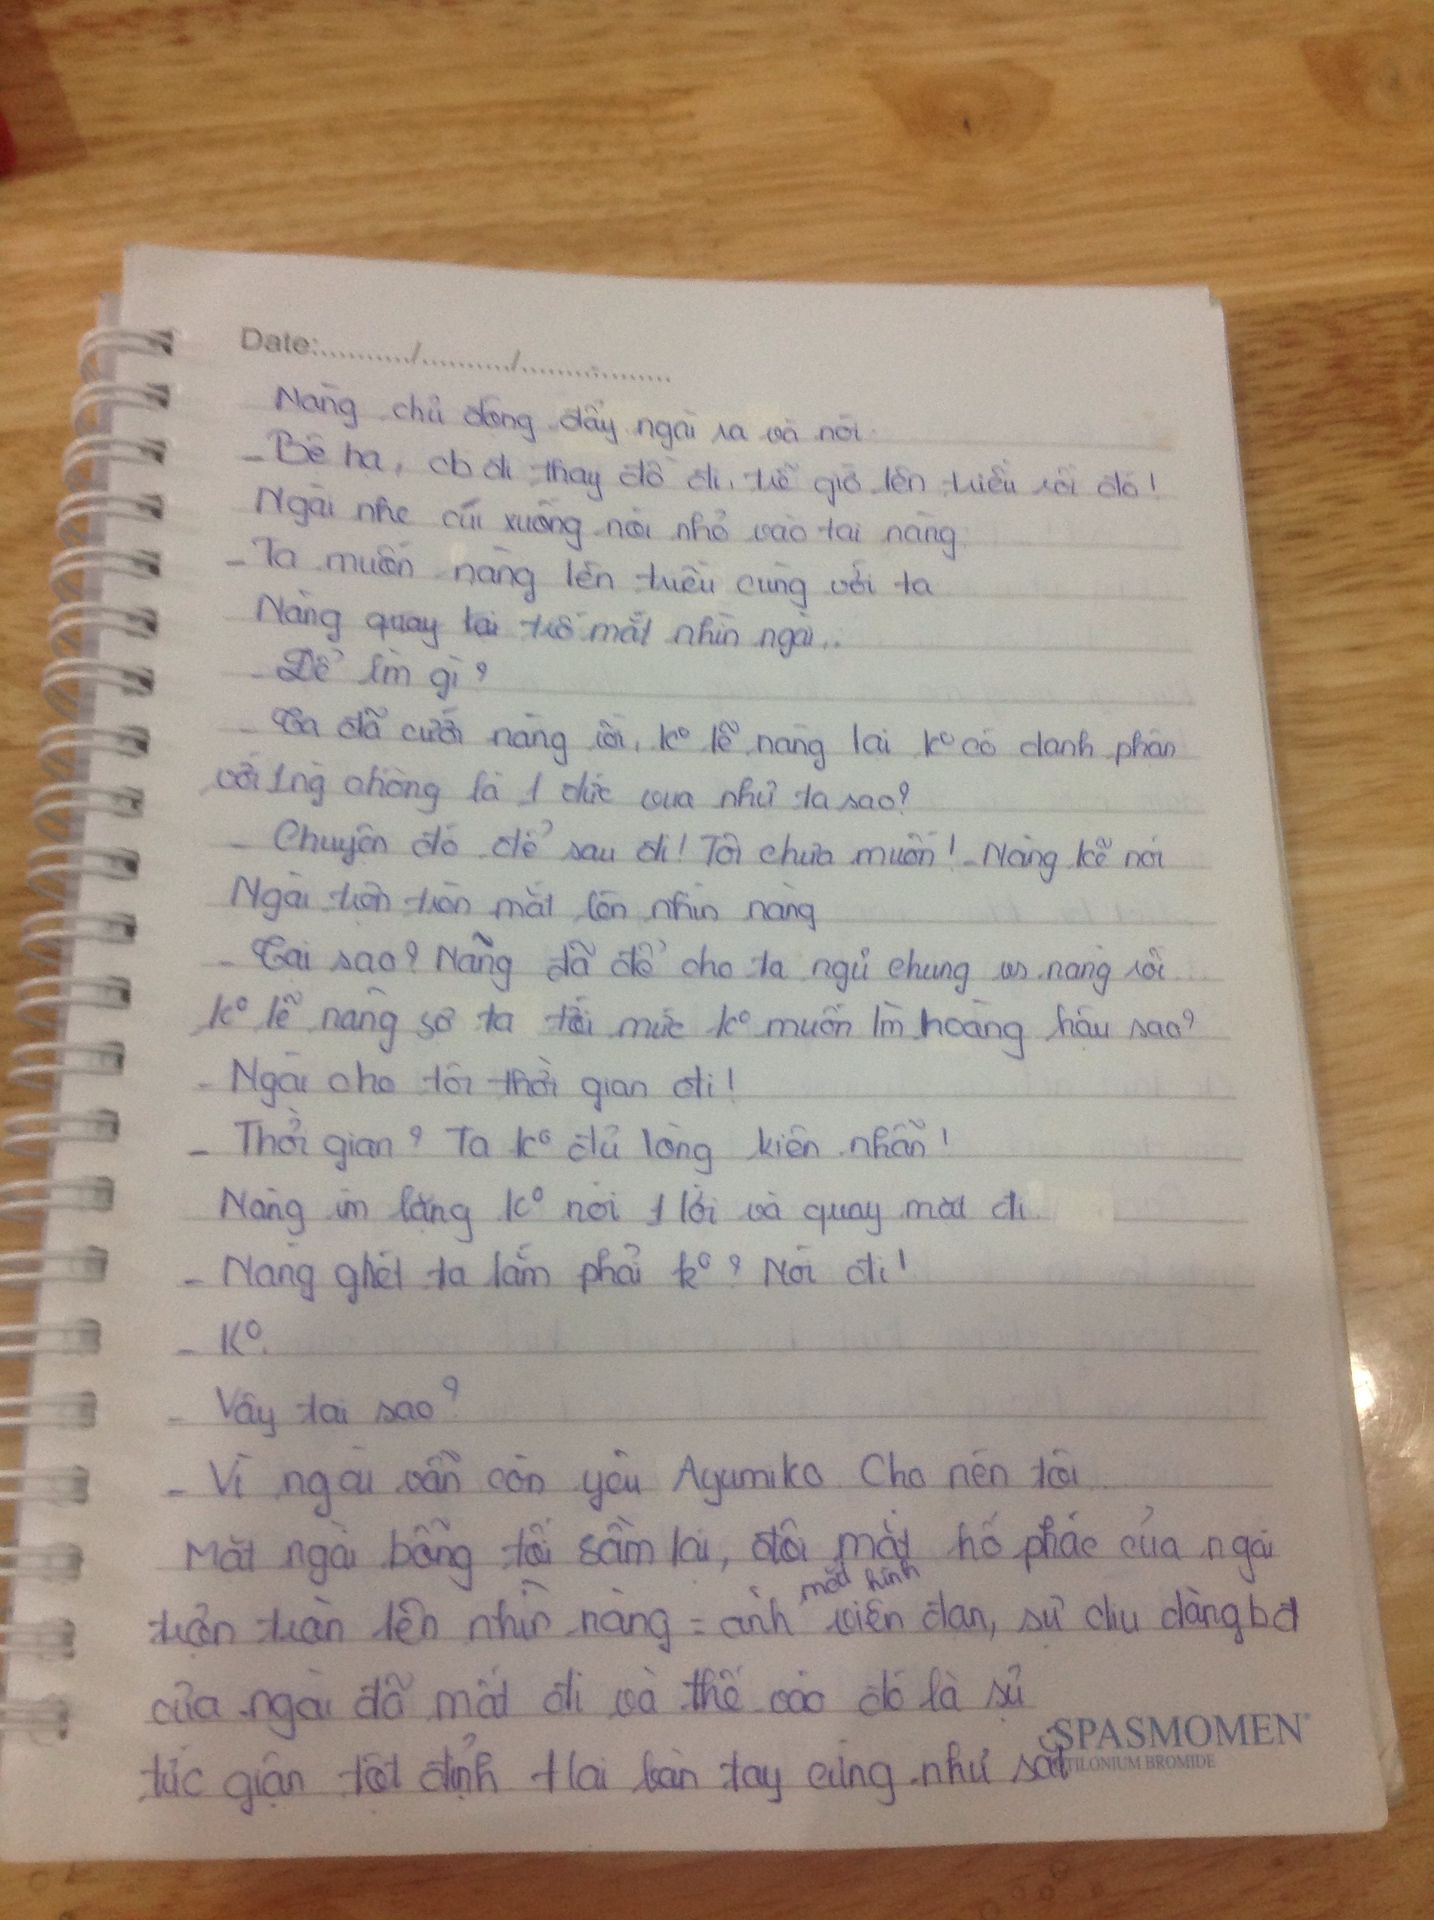 Date:............/............/....................
Nàng chủ động đẩy ngài ra và nói
- Bệ hạ, cb đi thay đồ đi, trễ giờ lên triều rồi đó!
Ngài nhẹ cúi xuống nói nhỏ vào tai nàng
- Ta muốn nàng lên triều cùng với ta
Nàng quay lại trố mắt nhìn ngài..
- Để lm gì?
- Ta đã cưới nàng rồi, k° lẽ nàng lại k° có danh phận
với 1ng chồng là 1 đức vua như ta sao?
- Chuyện đó để sau đi! Tôi chưa muốn! - Nàng kẽ nói
Ngài tròn tròn mắt lên nhìn nàng
- Tại sao? Nàng đã để cho ta ngủ chung vs nàng rồi
k° lẽ nàng sợ ta tới mức k° muốn lm hoàng hậu sao?
- Ngài cho tôi thời gian đi!
- Thời gian? Ta k° đủ lòng kiên nhẫn!
Nàng im lặng k° nói 1 lời và quay mặt đi
- Nàng ghét ta lắm phải k°? Nói đi!
- K°.
- Vậy tại sao?
- Vì ngài vẫn còn yêu Ayumiko Cho nên tôi
Mặt ngài bỗng tối sầm lại, đôi mắt hổ phác của ngài
trợn tràn lên nhìn nàng = ánh mắt hình viên đạn, sự dịu dàng bđ
của ngài đã mất đi và thế vào đó là sự
tức giận tột đỉnh Hai bàn tay cứng như sắt
SPASMOMEN®
TILONIUM BROMIDE